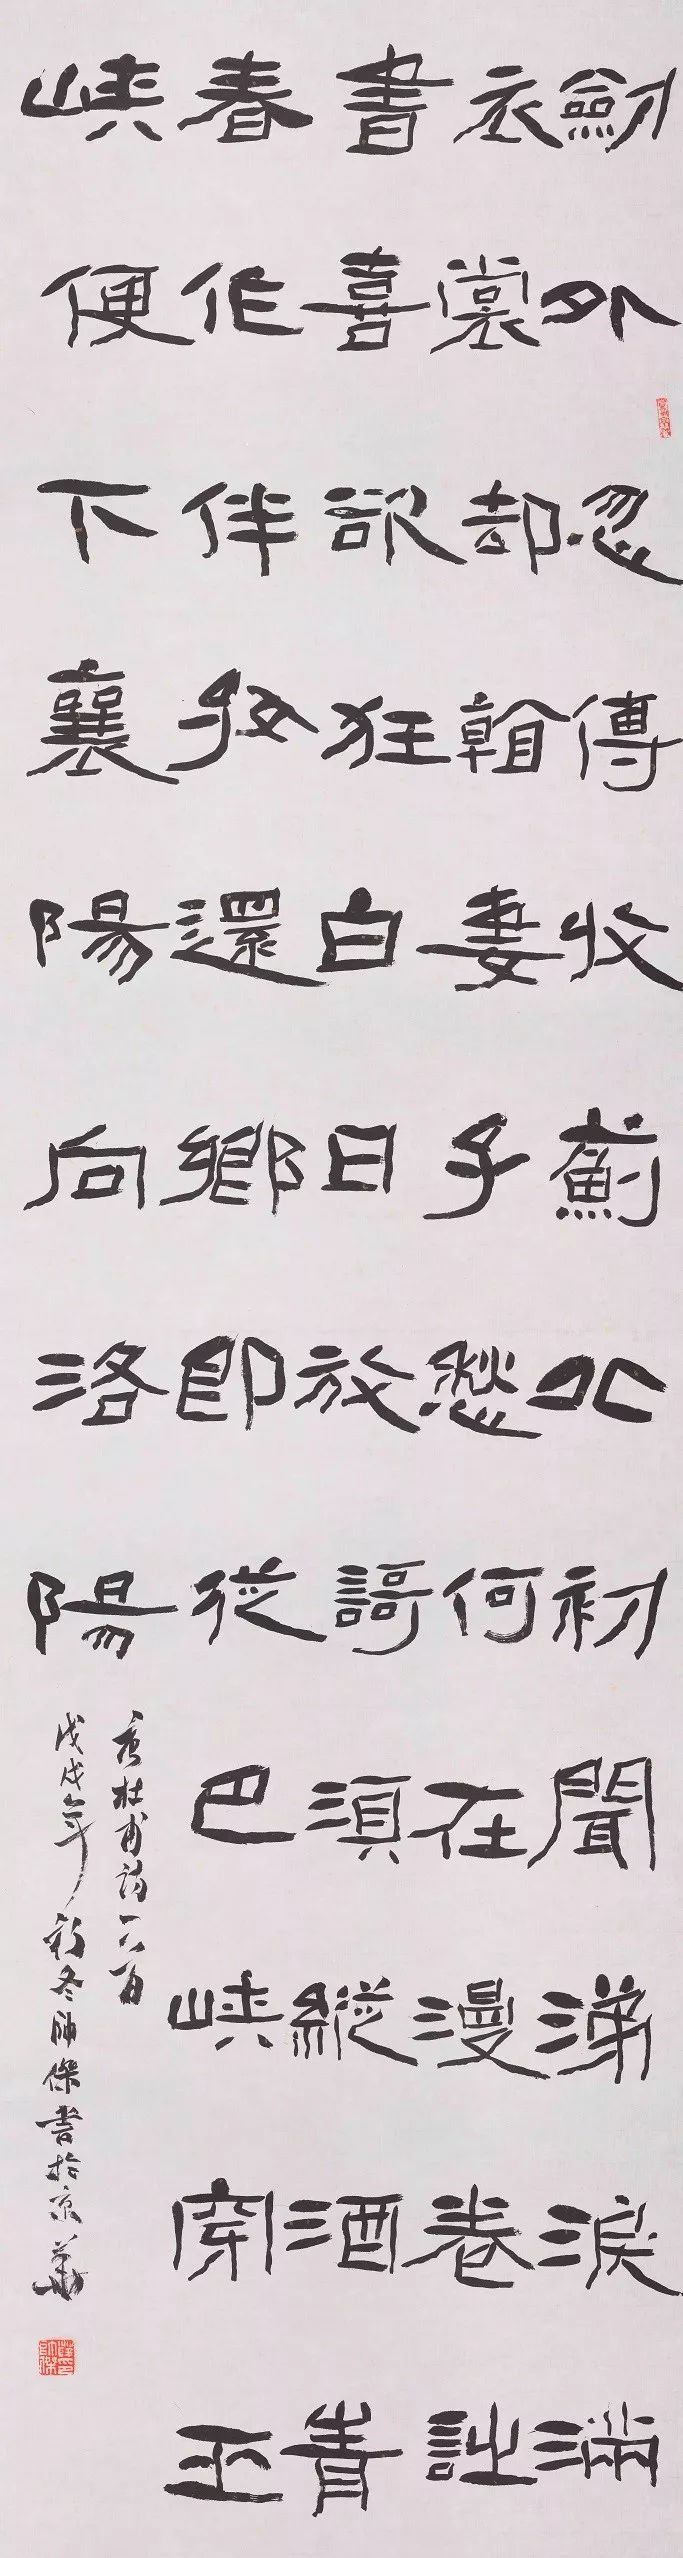 劒外忽傳收薊北初聞涕淚滿
衣裳却看妻子愁何在漫卷詩
書喜欲狂白日放謌須縱酒青
春作伴好還鄉即從巴峽穿巫
峽便下襄陽向洛陽
唐杜甫詩一首
戊戌年初冬帥傑書於京華